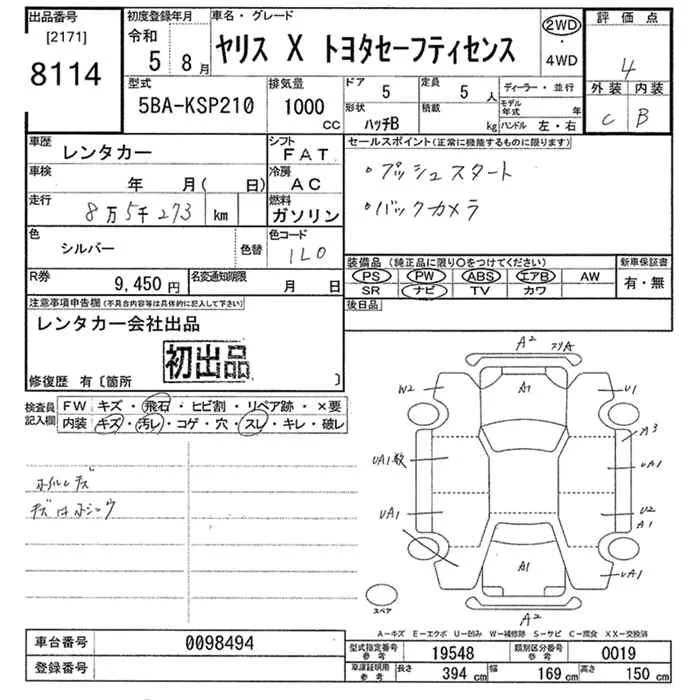 出品番号
[2171]
8114
初度登録年月
令和
5 8月
車名・グレード
ヤリス X トヨタセーフティセンス
2WD
・
4WD
評価点
4
外装 内装
C B
型式
5BA-KSP210
排気量
1000
CC
ドア
5
定員
5 人
形状
ハッチB
積載
kg
ディーラー・並行
モデル年式 年
ハンドル 左・右
車歴
レンタカー
シフト
FAT
車検
年 月( 日)
冷房
AC
走行
8万5千273 km
燃料
ガソリン
色
シルバー
色替
色コード
1L0
R券
9,450円
名変通知期限
月 日
セールスポイント(正常に機能するものに限ります)
・プッシュスタート
・バックカメラ
装備品(純正品に限り○をつけてください)
PS PW ABS エアB AW
SR ナビ TV カワ
新車保証書
有・無
後日品
注意事項申告欄(不具合内容等は具体的に記入して下さい)
レンタカー会社出品
初出品
修復歴 有〔箇所 〕
検査員
記入欄
FW キズ・飛石・ヒビ割・リペア跡・×要
内装 キズ・汚レ・コゲ・穴・スレ・キレ・破レ
ホイルキズ
キズ
A2
スリA
W2
A1
U1
A3
UA1数
UA1
UA1
U2
A1
A1
UA1
A2
スペア
A-キズ E-エクボ U-凹み W-補修跡 S-サビ C-腐食 XX-交換済
車台番号
0098494
登録番号
型式指定番号
参考
19548
類別区分番号
参考
0019
車庫証明用
参考
長さ 394 cm 幅 169 cm 高さ 150 cm